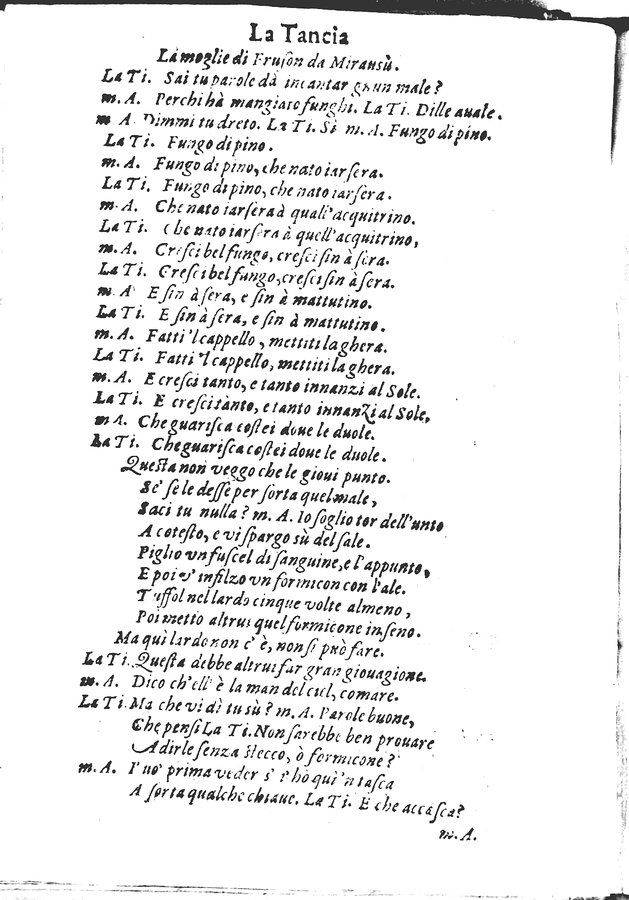 La Tancia
La moglie di Frusôn da Mirausù.
La Ti. Sai tu parole dà incantar gnun male?
m. A. Perchi hà mangiato funghi. La Ti. Dille auale.
m A. Dimmi tu dreto. La Ti. Sì m. A. Fungo di pino.
La Ti. Fungo di pino.
m. A. Fungo di pino, che nato iarſera.
La Ti. Fungo di pino, che nato iarſera.
m. A. Che nato iarſera à quell'acquitrino.
La Ti. Che nato iarſera à quell'acquitrino,
m. A. Creſci bel fungo, creſci ſin à ſera.
La Ti. Creſci bel fungo, creſci ſin à ſera.
m. A' E ſin à ſera, e ſin à mattutino.
La Ti. E ſin à ſera, e ſin à mattutino.
m. A. Fatti 'l cappello, mettiti la ghera.
La Ti. Fatti 'l cappello, mettiti la ghera.
m. A. E creſci tanto, e tanto innanzi al Sole.
La Ti. E creſci tanto, e tanto innanzi al Sole,
m A. Che guariſca coſtei doue le duole.
La Ti. Che guariſca coſtei doue le duole.
Queſta non veggo che le gioui punto.
Se' ſe le deſſe per ſorta quel male,
Saci tù nulla? m. A. Io ſoglio tor dell'unto
A coteſto, e vi ſpargo sù del ſale.
Piglio vn fuſcel di ſanguine, e l'appunto,
E poi v' infilzo vn formicon con l'ale.
Tuffol nel lardo cinque volte almeno,
Poi metto altrui quel formicone in ſeno.
Ma quì lardo non c' è, non ſi può fare.
La Ti. Queſta debbe altrui far gran giouagione.
m. A. Dico ch'ell' è la man del ciel, comare.
La Ti. Ma che vi dì tu sù? m. A. Parole buone,
Che penſi La Ti. Non ſarebbe ben prouare
A dirle ſenza ſtecco, ò formicone?
m. A. I' uo' prima veder s' i' hò qui 'n taſca
A ſorta qualche chiaue. La Ti. E che accaſca?
m. A.